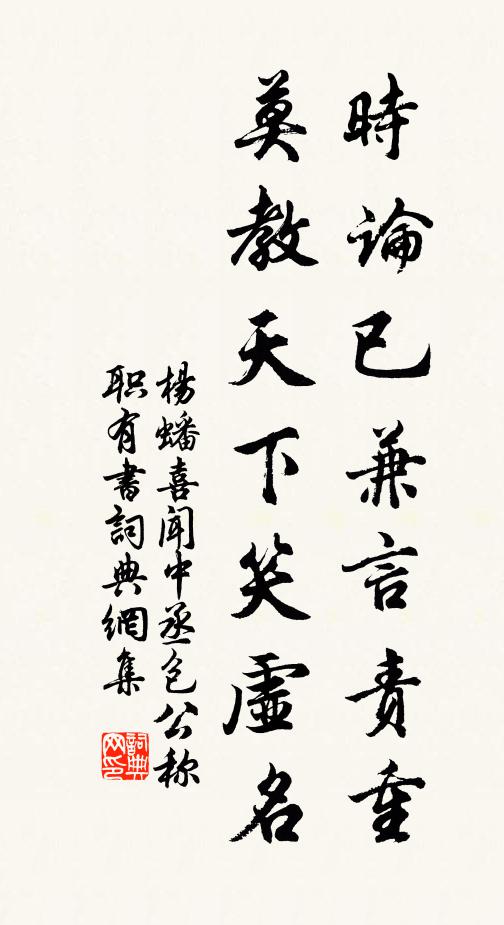 時論已兼言責重
莫教天下笑虛名
楊蟠喜闻中丞包公称
职有書詞典網集
詞典网印